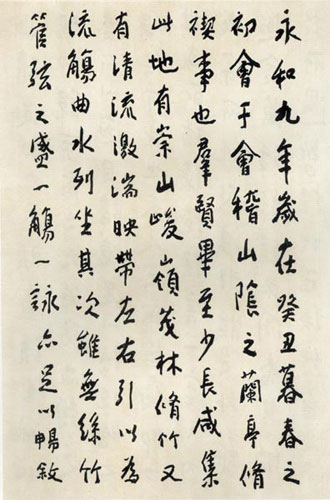 永和九年歲在癸丑暮春之
初會于會稽山陰之蘭亭脩
禊事也羣賢畢至少長咸集
此地有崇山峻嶺茂林脩竹又
有清流激湍映帶左右引以為
流觴曲水列坐其次雖無絲竹
管弦之盛一觴一詠亦足以暢敘